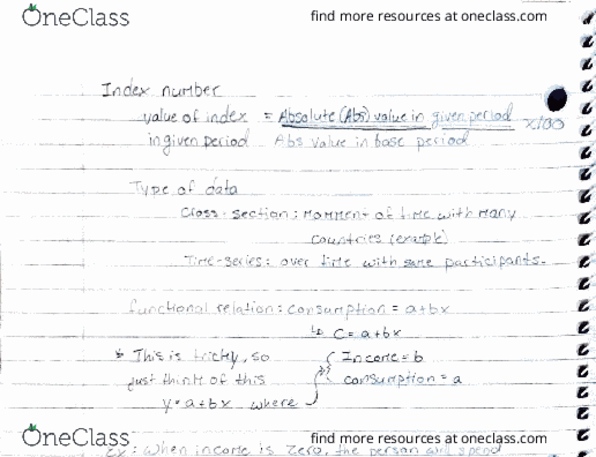 OneClass find more resources at oneclass.com
Index number
value of index = Absolute (Abs) value in given period x100
in given period Abs value in base period
Type of data
Cross-section: Moment of time with many
countries (example)
Time-series: over time with same participants.
functional relation: consumption = a+bx
↳ C = a+bx
* This is tricky, so { Income = b
just think of this consumption = a
y = a+bx where
OneClass find more resources at oneclass.com
ex: when income is zero, the person will spend